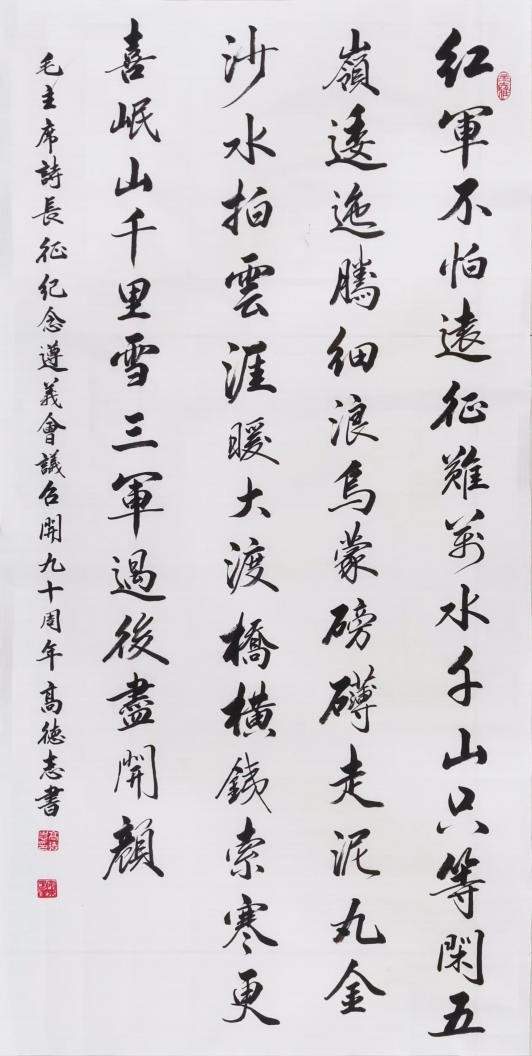 紅軍不怕遠征難萬水千山只等閑五
嶺逶迤騰細浪烏蒙磅礴走泥丸金
沙水拍雲涯暖大渡橋橫鐵索寒更
喜岷山千里雪三軍過後盡開顏
毛主席詩長征紀念遵義會議召開九十周年高德志書